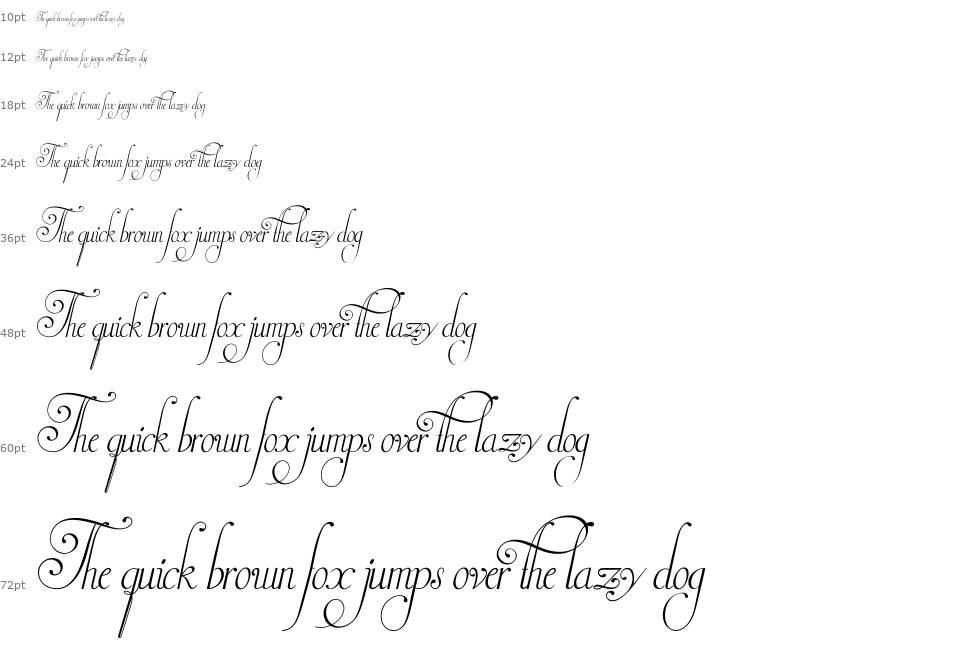 10pt The quick brown fox jumps over the lazy dog
12pt The quick brown fox jumps over the lazy dog
18pt The quick brown fox jumps over the lazy dog
24pt The quick brown fox jumps over the lazy dog
36pt The quick brown fox jumps over the lazy dog
48pt The quick brown fox jumps over the lazy dog
60pt The quick brown fox jumps over the lazy dog
72pt The quick brown fox jumps over the lazy dog